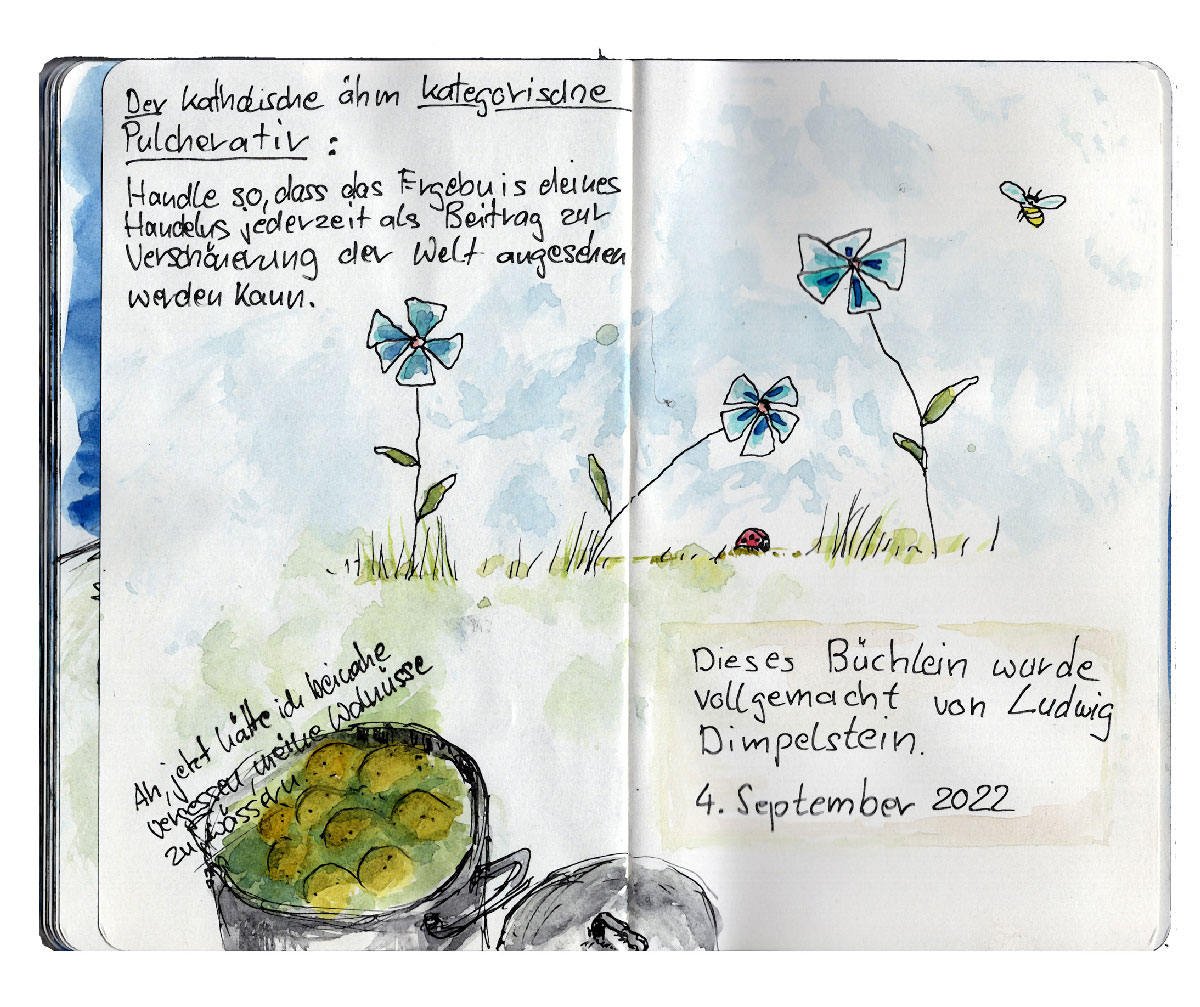 Der katholische ähm kategorische
Pulcherativ :
Handle so, dass das Ergebnis deines
Handelns jederzeit als Beitrag zur
Verschönerung der Welt angesehen
werden kann.
Ah, jetzt hätte ich beinahe
vergessen, meine Walnüsse
zu wässern
Dieses Büchlein wurde
vollgemacht von Ludwig
Dimpelstein.
4. September 2022